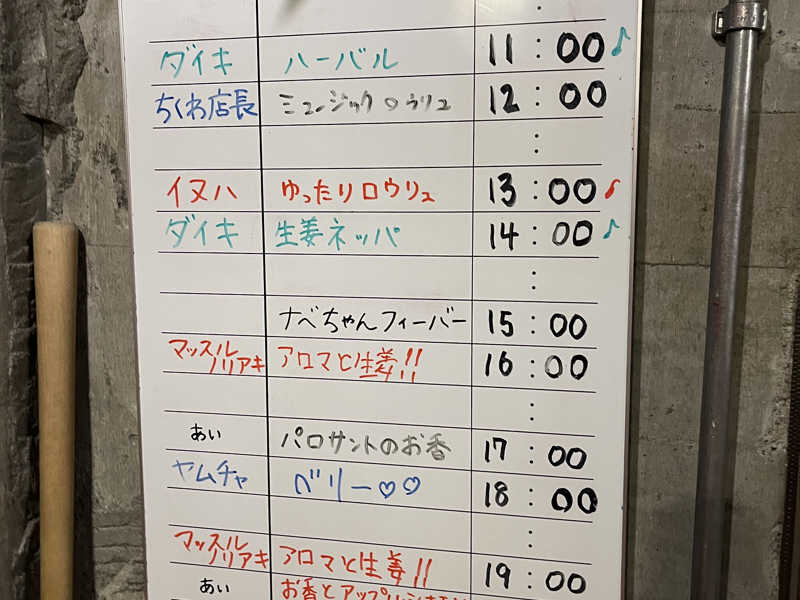 :
ダイキ ハーバル 11:00♪
ちくわ店長 ミュージックロウリュ 12:00
:
イヌハ ゆったりロウリュ 13:00♪
ダイキ 生姜ネッパ 14:00♪
:
ナベちゃんフィーバー 15:00
マッスルノリアキ アロマと生姜!! 16:00
:
あい パロサントのお香 17:00
ヤムチャ ベリー♡♡ 18:00
:
マッスルノリアキ アロマと生姜!! 19:00
あい お香とアップル